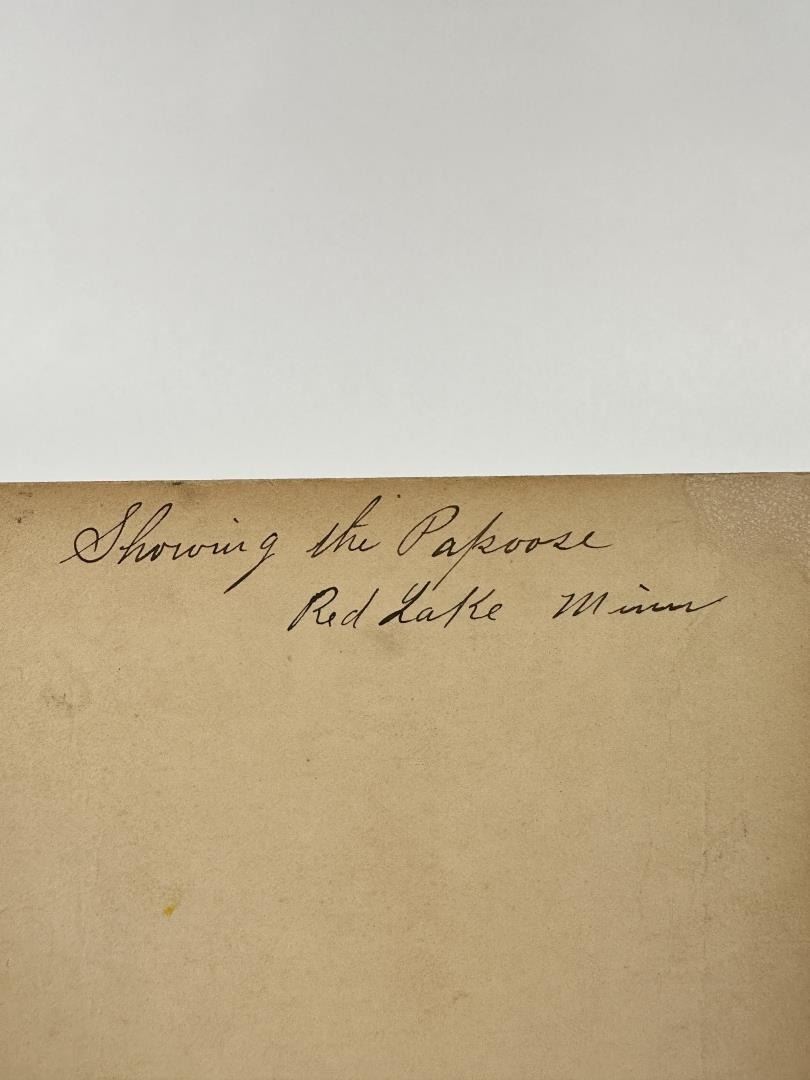 Showing the Papoose
Red Lake Minn